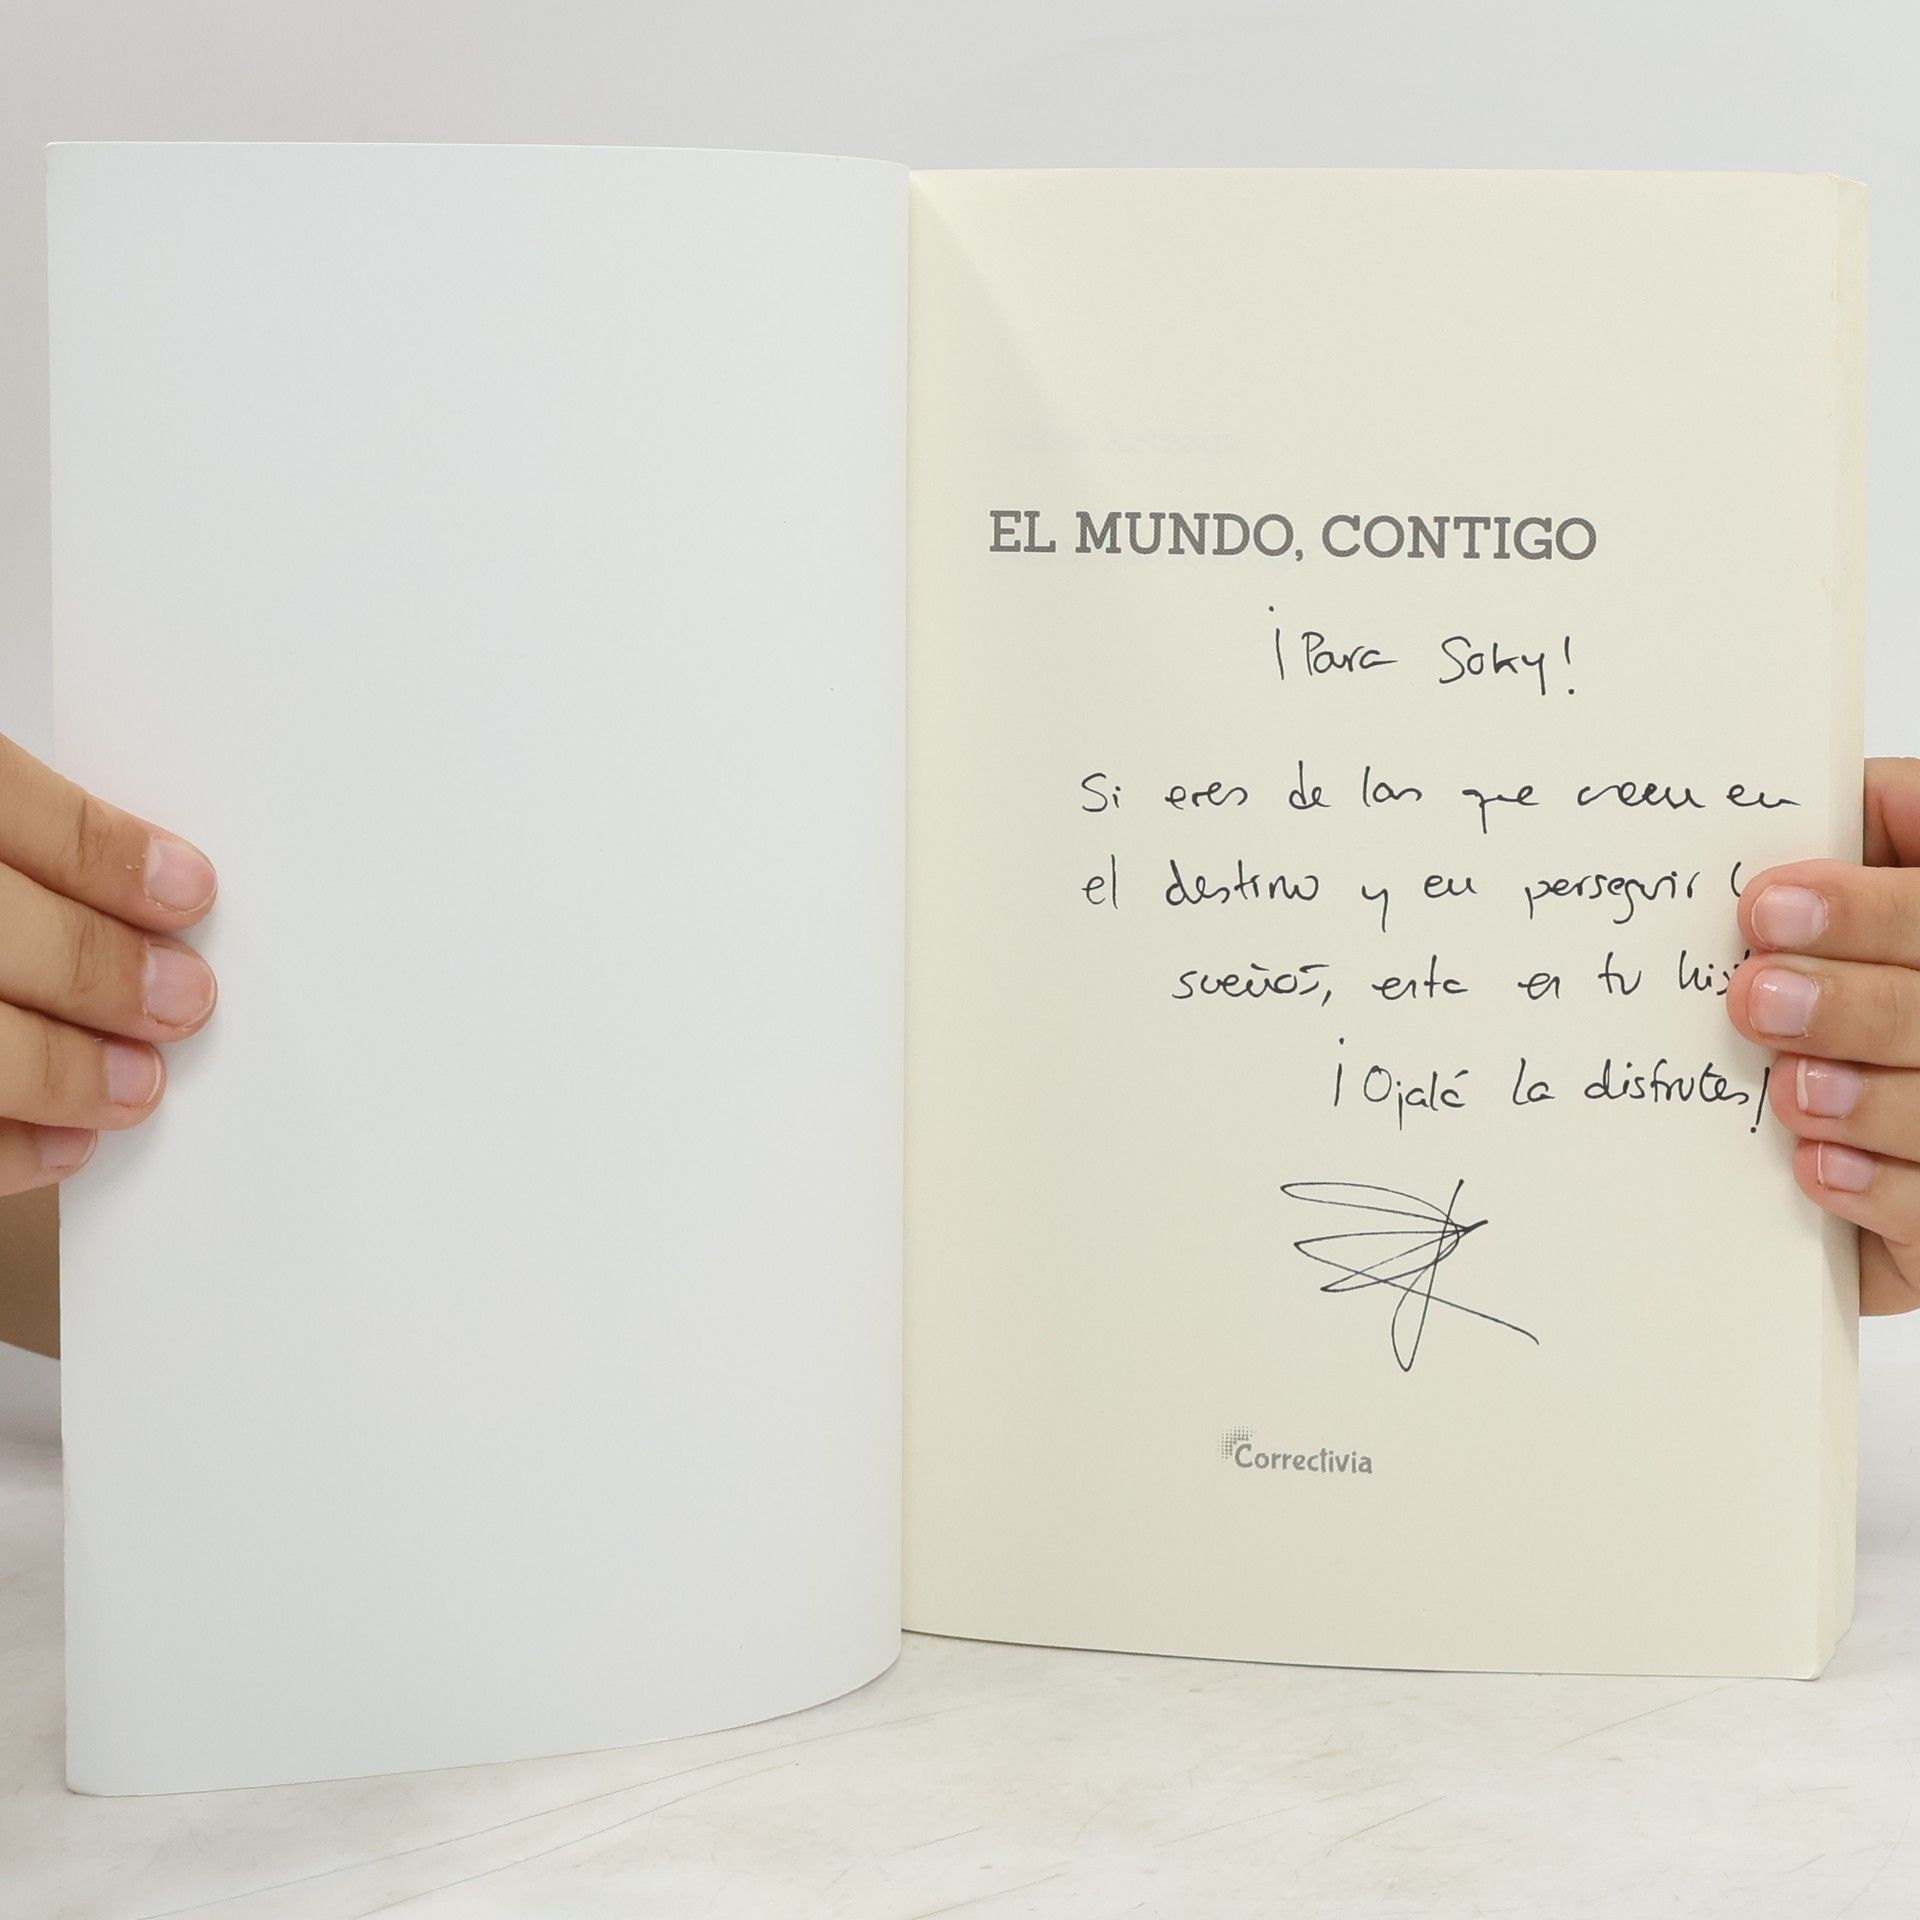 EL MUNDO, CONTIGO
¡Para Soky!
Si eres de las que creen en
el destino y en perseguir
sueños, esta es tu
¡Ojalá la disfrutes!
Correctivia